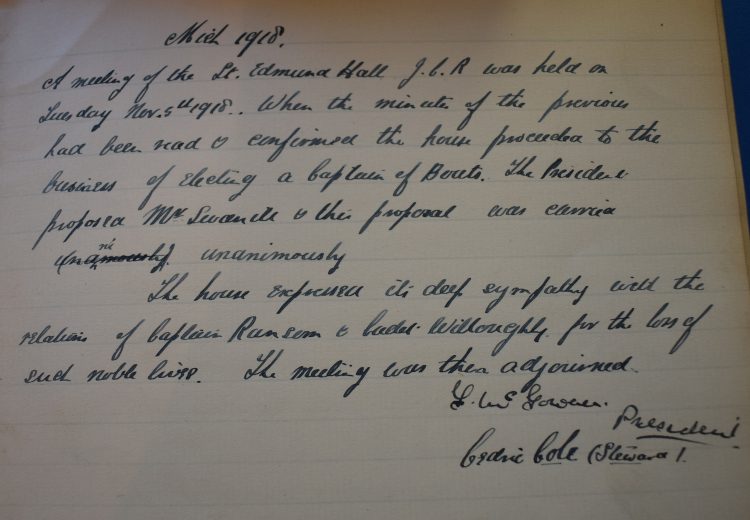 Mich 1918.
A meeting of the St. Edmund Hall J.C.R was held on
Tuesday Nov. 5th 1918.. When the minutes of the previous
had been read & confirmed the house proceeded to the
business of electing a Captain of Boats. The President
proposed Mr Swanell & this proposal was carried
unanimously unanimously
The house expressed its deep sympathy with the
relations of Captain Ransom & Cadet Willoughby for the loss of
such noble lives. The meeting was then adjourned.
President
Cedric Cole (Steward).